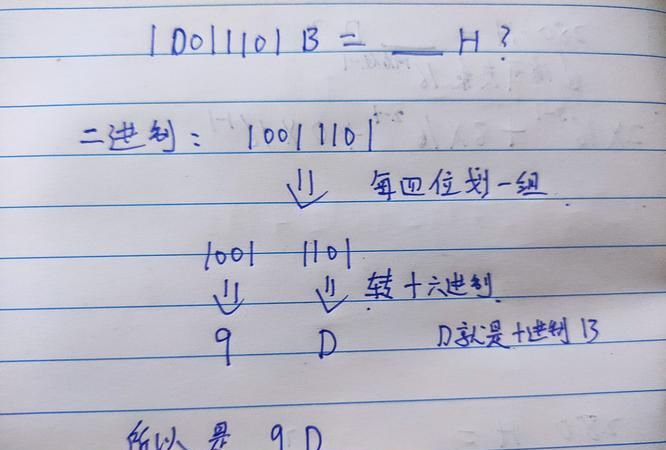 10011101 B = __ H ?
二进制: 10011101
每四位划一组
1001 1101
转十六进制
9 D
D就是十进制13
所以是 9D